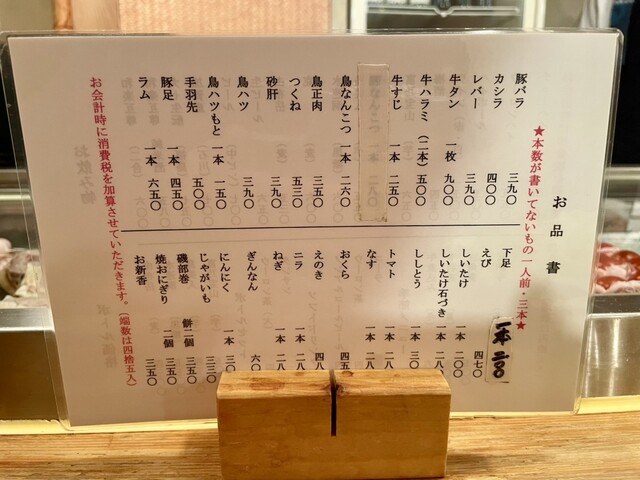 お品書
★本数が書いてないもの一人前・三本★
豚バラ 三九〇
カシラ 四〇〇
レバー 三九〇
牛タン 一枚 九〇〇
牛ハラミ(二本)五〇〇
牛すじ 一本 二五〇
鳥なんこつ 一本 二六〇
鳥正肉 三五〇
つくね 五三〇
砂肝 三九〇
鳥ハツ 三九〇
鳥ハツもと 一本 一五〇
手羽先 五〇〇
豚足 一本 四五〇
ラム 一本 六五〇
下足 一本 二〇〇
えび 四七〇
しいたけ 一本 二〇〇
しいたけ石づき 一本 二八
ししとう 一本 三〇
トマト 一本 二八
なす 一本 二八
おくら 四五
えのき 四八
ニラ 一本 二八
ねぎ 一本 二八
ぎんなん 六〇
にんにく 一本
じゃがいも 三三〇
磯部巻 餅二個 三五〇
焼おにぎり 二個 三五〇
お新香 三五〇
お会計時に消費税を加算させていただきます。(端数は四捨五入)